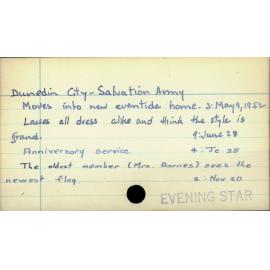 Dunedin City - Salvation Army
Moves into new eventide home. 3: May 9, 1952
Lasses all dress alike and think the style is
grand. 9: June 28
Anniversary service 4: Je 28
The oldest member (Mrs. Barnes) sees the
newest flag. 2: Nov 20
EVENING STAR